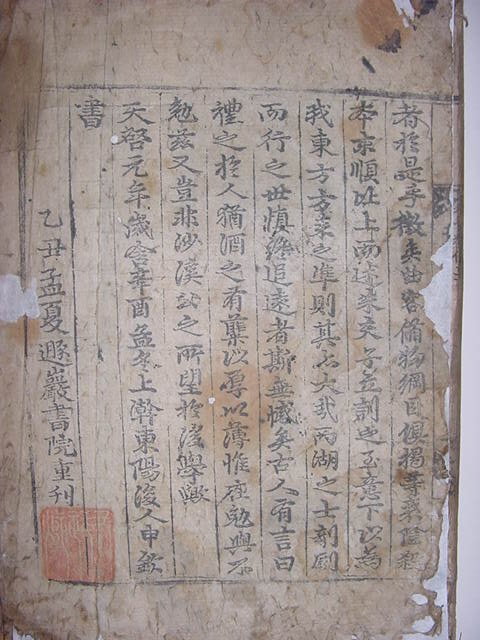 者於是乎徵矣曲容備物綱目俱揭等衰隆殺
本宗順以上而述朱夫子立訓之至意下以為
我東方方來之準則其不大哉兩湖之士剞劂
而行之世愼終追遠者斯無憾矣古人有言曰
禮之於人猶酒之有蘖以厚以薄惟在勉與不
勉兹又豈非沙溪公之所望於後學歟
天啓元年歲舍辛酉孟冬上澣東陽後人申欽
書
乙丑孟夏遯巖書院重刊